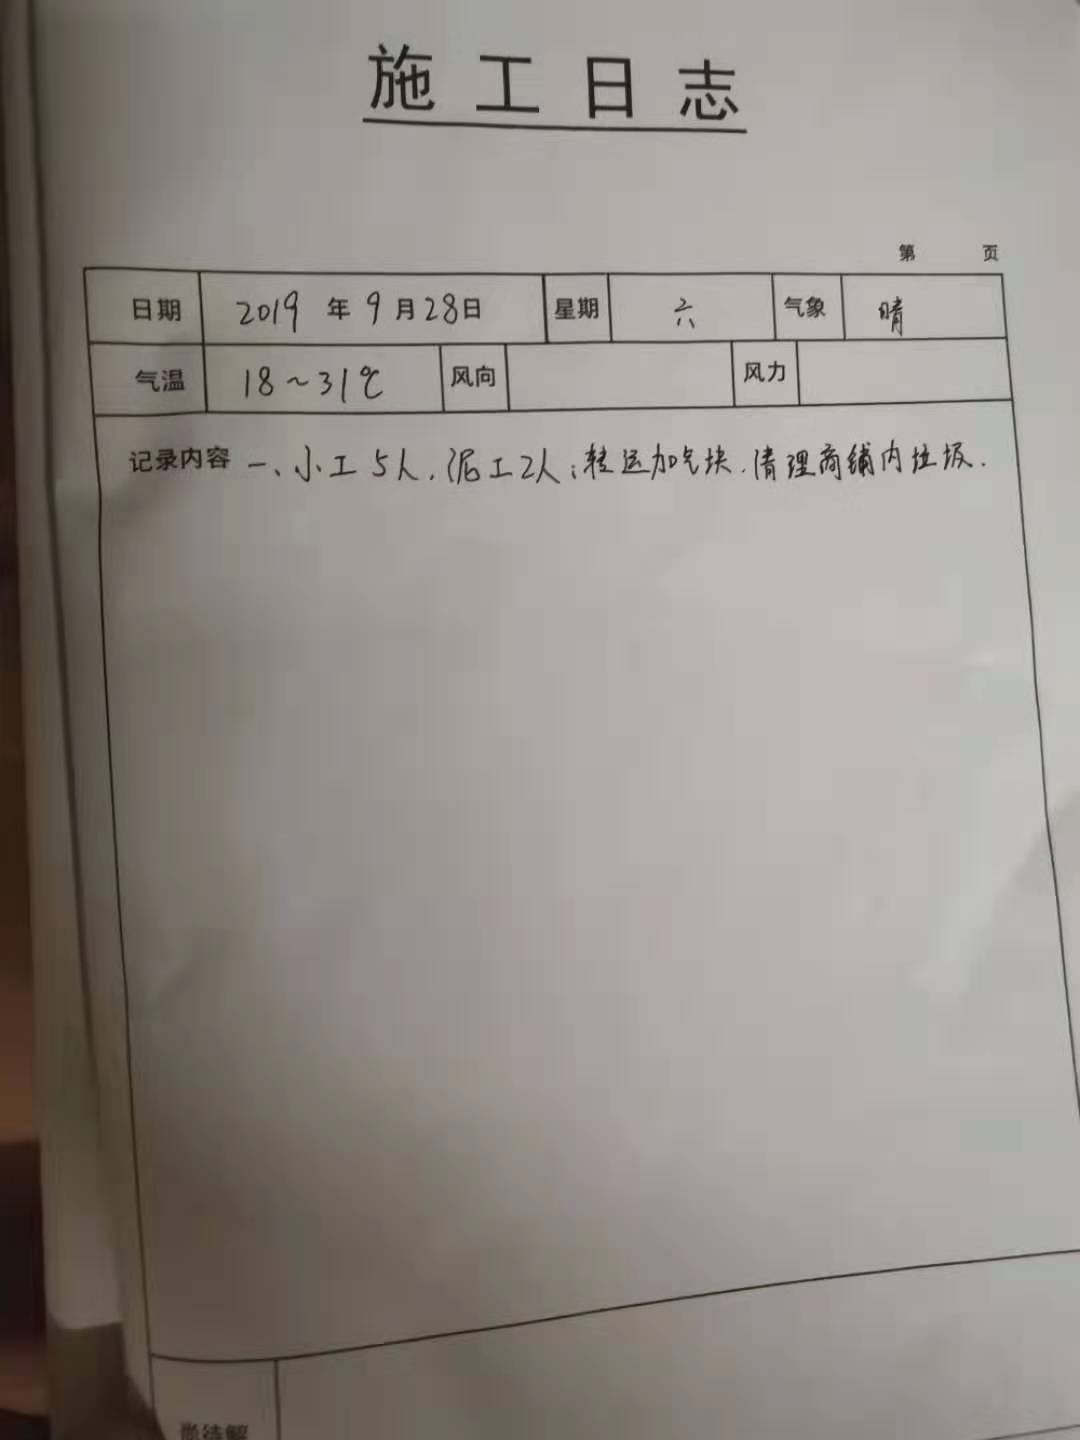 施工日志
第 页
日期 2019 年 9 月 28 日 星期 六 气象 晴
气温 18～31℃ 风向 风力
记录内容 一、小工5人，泥工2人；转运加气块，清理商铺内垃圾.
尚待解